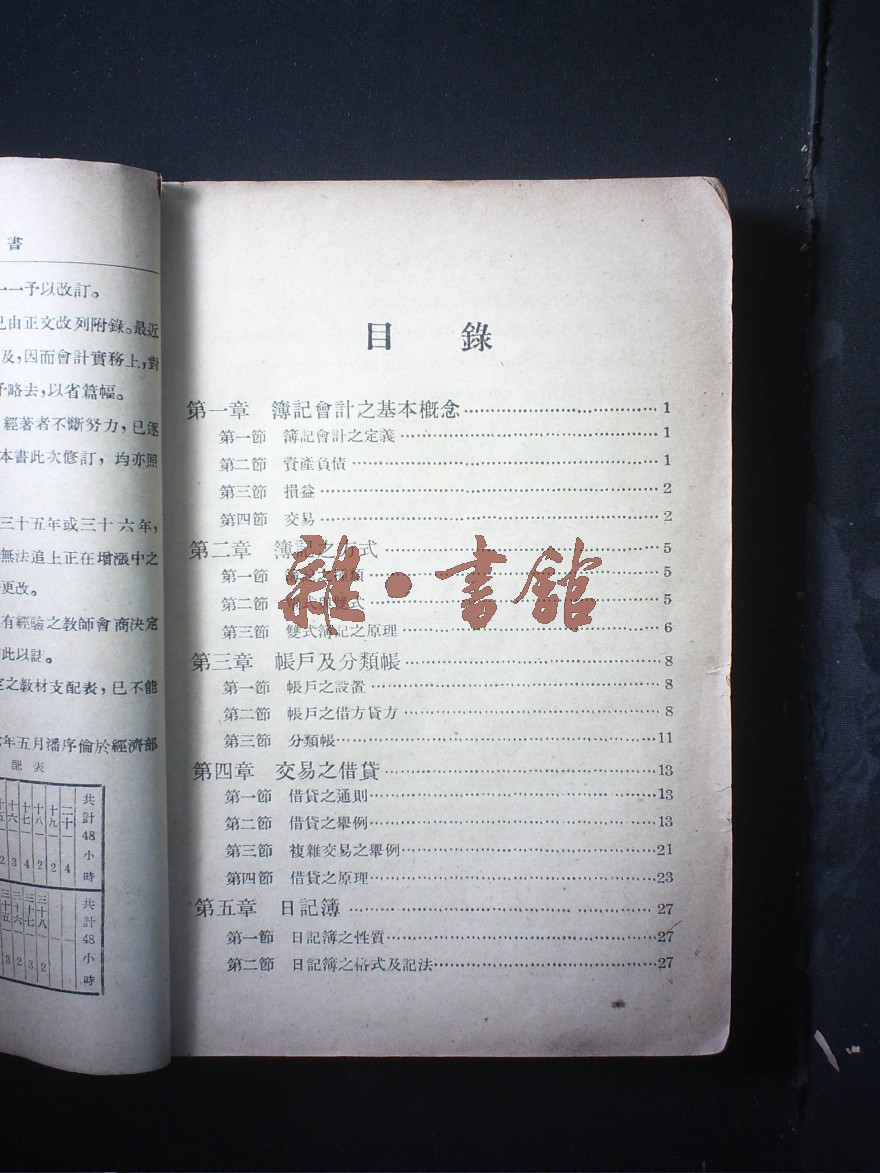 書
一一予以改訂。
已由正文改列附錄。最近
及,因而會計實務上,對
予略去,以省篇幅。
經著者不斷努力,已逐
本書此次修訂,均亦照
三十五年或三十六年,
無法追上正在增漲中之
更改。
有經驗之教師會商決定
此以誌。
定之教材支配表,已不能
年五月潘序倫於經濟部
配表
共計48小時
共計48小時
目錄
第一章 簿記會計之基本概念 1
第一節 簿記會計之定義 1
第二節 資產負債 1
第三節 損益 2
第四節 交易 2
第二章 簿記之方式 5
第一節 5
第二節 單式與雙式 5
第三節 雙式簿記之原理 6
第三章 帳戶及分類帳 8
第一節 帳戶之設置 8
第二節 帳戶之借方貸方 8
第三節 分類帳 11
第四章 交易之借貸 13
第一節 借貸之通則 13
第二節 借貸之舉例 13
第三節 複雜交易之舉例 21
第四節 借貸之原理 23
第五章 日記簿 27
第一節 日記簿之性質 27
第二節 日記簿之格式及記法 27
雜·書館